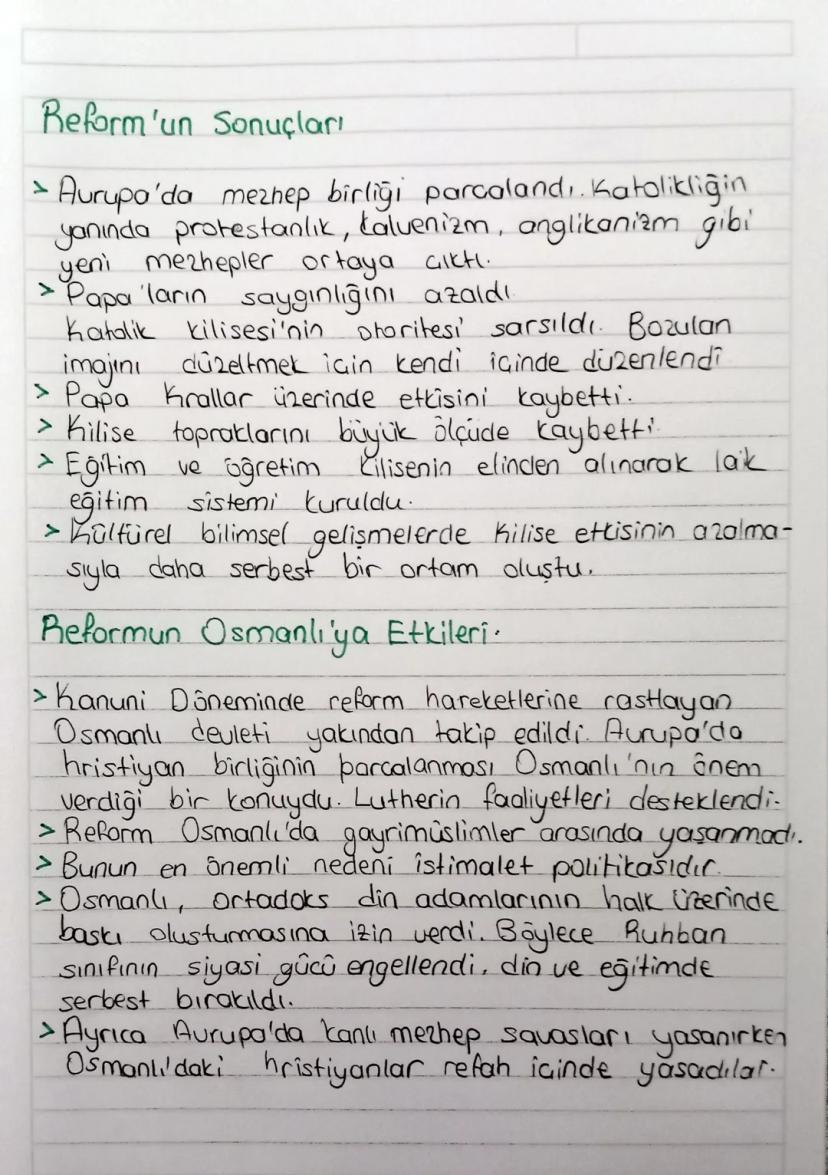 Reform'un Sonuçları
> Avrupa'da mezhep birliği parçalandı. Katolikliğin
yanında protestanlık, kalvenizm, anglikanizm gibi
yeni mezhepler ortaya çıktı.
> Papa'ların saygınlığını azaldı
Katolik kilisesi'nin otoritesi sarsıldı. Bozulan
imajını düzeltmek için kendi içinde düzenlendi
> Papa Krallar üzerinde etkisini kaybetti.
> Kilise topraklarını büyük ölçüde kaybetti.
> Eğitim ve öğretim kilisenin elinden alınarak laik
eğitim sistemi kuruldu.
> Kültürel bilimsel gelişmelerde kilise etkisinin azalma-
sıyla daha serbest bir ortam oluştu.
Reformun Osmanlı'ya Etkileri.
> Kanuni Döneminde reform hareketlerine rastlayan
Osmanlı devleti yakından takip edildi. Avrupa'da
hristiyan birliğinin parcalanması Osmanlı'nın önem
verdiği bir konuydu. Lutherin faaliyetleri desteklendi.
> Reform Osmanlı'da gayrimüslimler arasında yaşanmadı.
> Bunun en önemli nedeni istimalet politikasıdır.
> Osmanlı, ortadoks din adamlarının halk üzerinde
baskı olusturmasına izin verdi. Böylece Ruhban
sınıfının siyasi gücü engellendi, din ve eğitimde
serbest bırakıldı.
> Ayrıca Avrupa'da kanlı mezhep savasları yasanırken
Osmanlı'daki hristiyanlar refah icinde yasadılar.